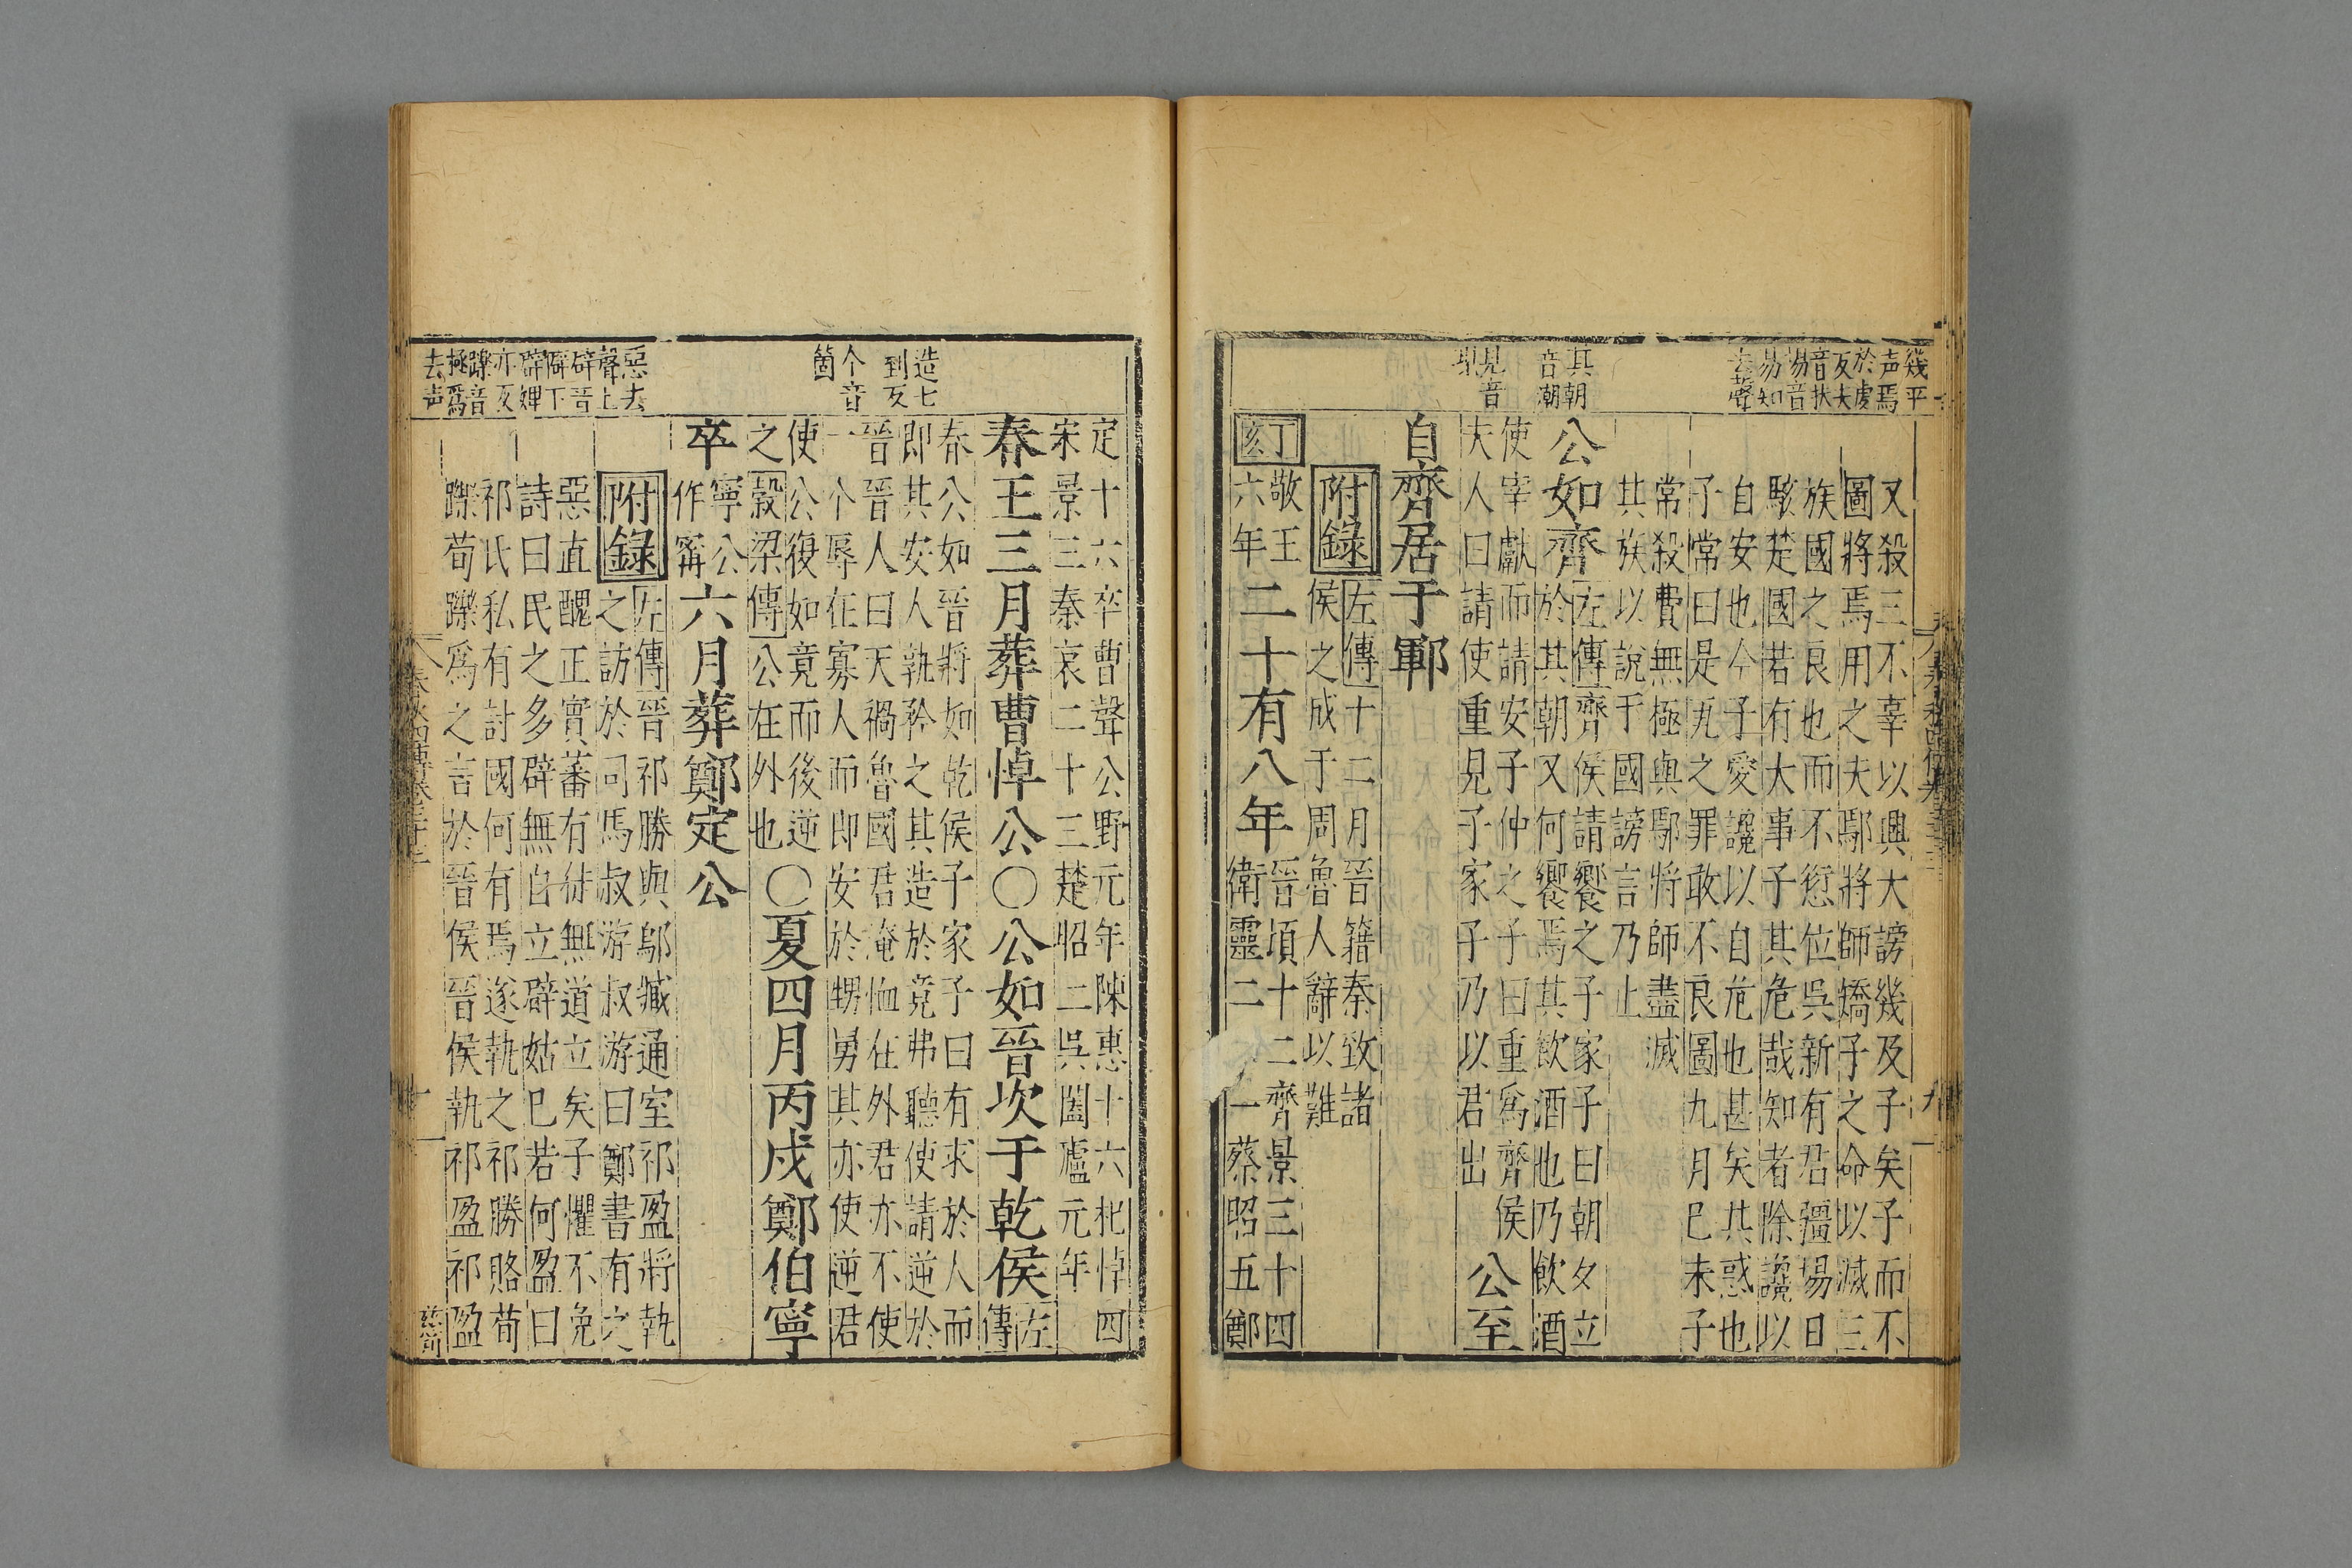 幾平
声焉
於虔
反夫
音扶
埸音
易知
去聲
其朝
音潮
見音
現
又殺三不辜以興大謗幾及子矣子而不
圖將焉用之夫鄢將師矯子之命以滅三
族國之良也而不愆位吳新有君疆埸日
駭楚國若有大事子其危哉知者除讒以
自安也今子愛讒以自危也甚矣其惑也
子常曰是瓦之罪敢不良圖九月己未子
常殺費無極與鄢將師盡滅
其族以說于國謗言乃止
公如齊左傳齊侯請饗之子家子曰朝夕立
於其朝又何饗焉其飲酒也乃飲酒
使宰獻而請安子仲之子曰重爲齊侯
夫人曰請使重見子家子乃以君出
公至
自齊居于鄆
附錄左傳十二月晉籍秦致諸
侯之戍于周魯人辭以難
丁亥
敬王
六年
二十有八年
晉頃十二齊景三十四
衛靈二
一蔡昭五鄭
定十六卒曹聲公野元年陳惠十六杞悼四
宋景三秦哀二十三楚昭二吳闔廬元年
春王三月葬曹悼公○公如晉次于乾侯左傳
春公如晉將如乾侯子家子曰有求於人而
即其安人孰矜之其造於竟弗聽使請逆於
晉晉人曰天禍魯國君淹恤在外君亦不使
一个辱在寡人而即安於甥舅其亦使逆君
使公復如竟而後逆
之穀梁傳公在外也
○夏四月丙戌鄭伯寧
卒
寧公
作甯
六月葬鄭定公
附錄左傳晉祁勝與鄔臧通室祁盈將執
之訪於司馬叔游叔游曰鄭書有之
惡直醜正實蕃有徒無道立矣子懼不免
詩曰民之多辟無自立辟姑已若何盈曰
祁氏私有討國何有焉遂執之祁勝賂荀
躒荀躒爲之言於晉侯晉侯執祁盈祁盈
造七
到反
个音
箇
惡去
聲上
辟音
僻下
辟婢
亦反
躒音
去声
春秋四傳卷三十二
十